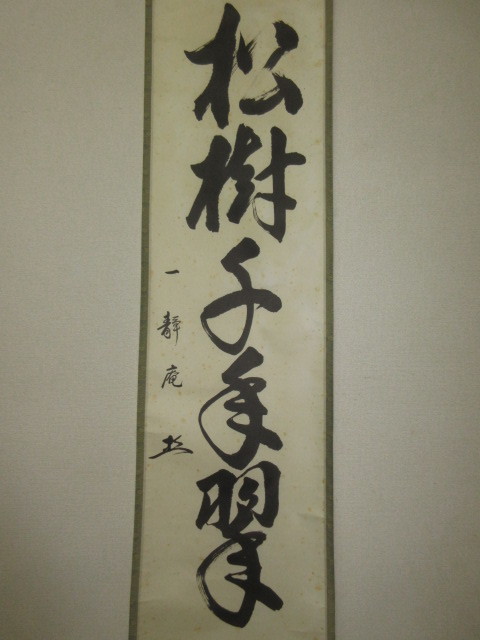 松樹千年翠
一靜庵